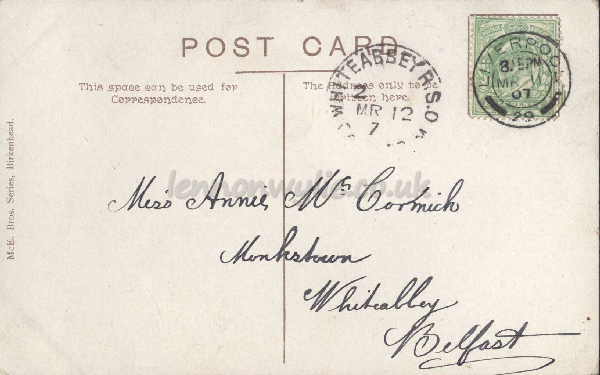 POST CARD
This space can be used for
Correspondence.
The Address only to be
written here.
WHITEABBEY R.S.O.
MR 12
7
LIVERPOOL
8.15 PM
MR 11
07
29
lennonwylie.co.uk
Miss Annie Mc Cormick
Monkstown
Whiteabbey
Belfast
McE. Bros. Series, Birkenhead.